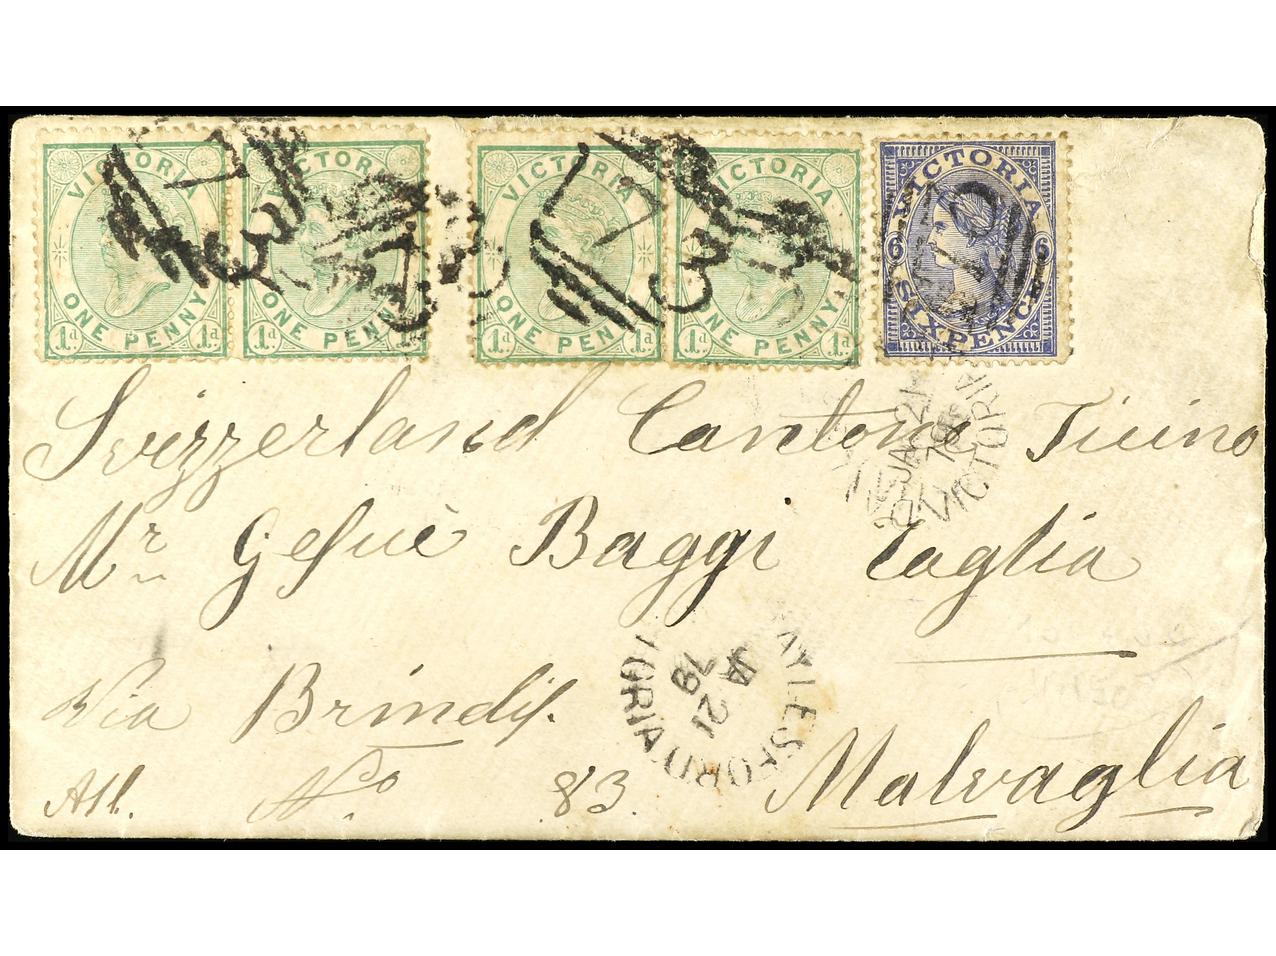 VICTORIA
ONE PENNY
1d 1d
VICTORIA
ONE PENNY
1d 1d
VICTORIA
ONE PENNY
1d 1d
VICTORIA
ONE PENNY
1d 1d
VICTORIA
6 6
SIX PENCE
Svizzerland Canton Ticino
JA 21
79
VICTORIA
Mr Gesuè Baggi Taglia
AYLESFORD
JA 21
79
VICTORIA
Via Brindis.
Malvaglia
All. No. 83.